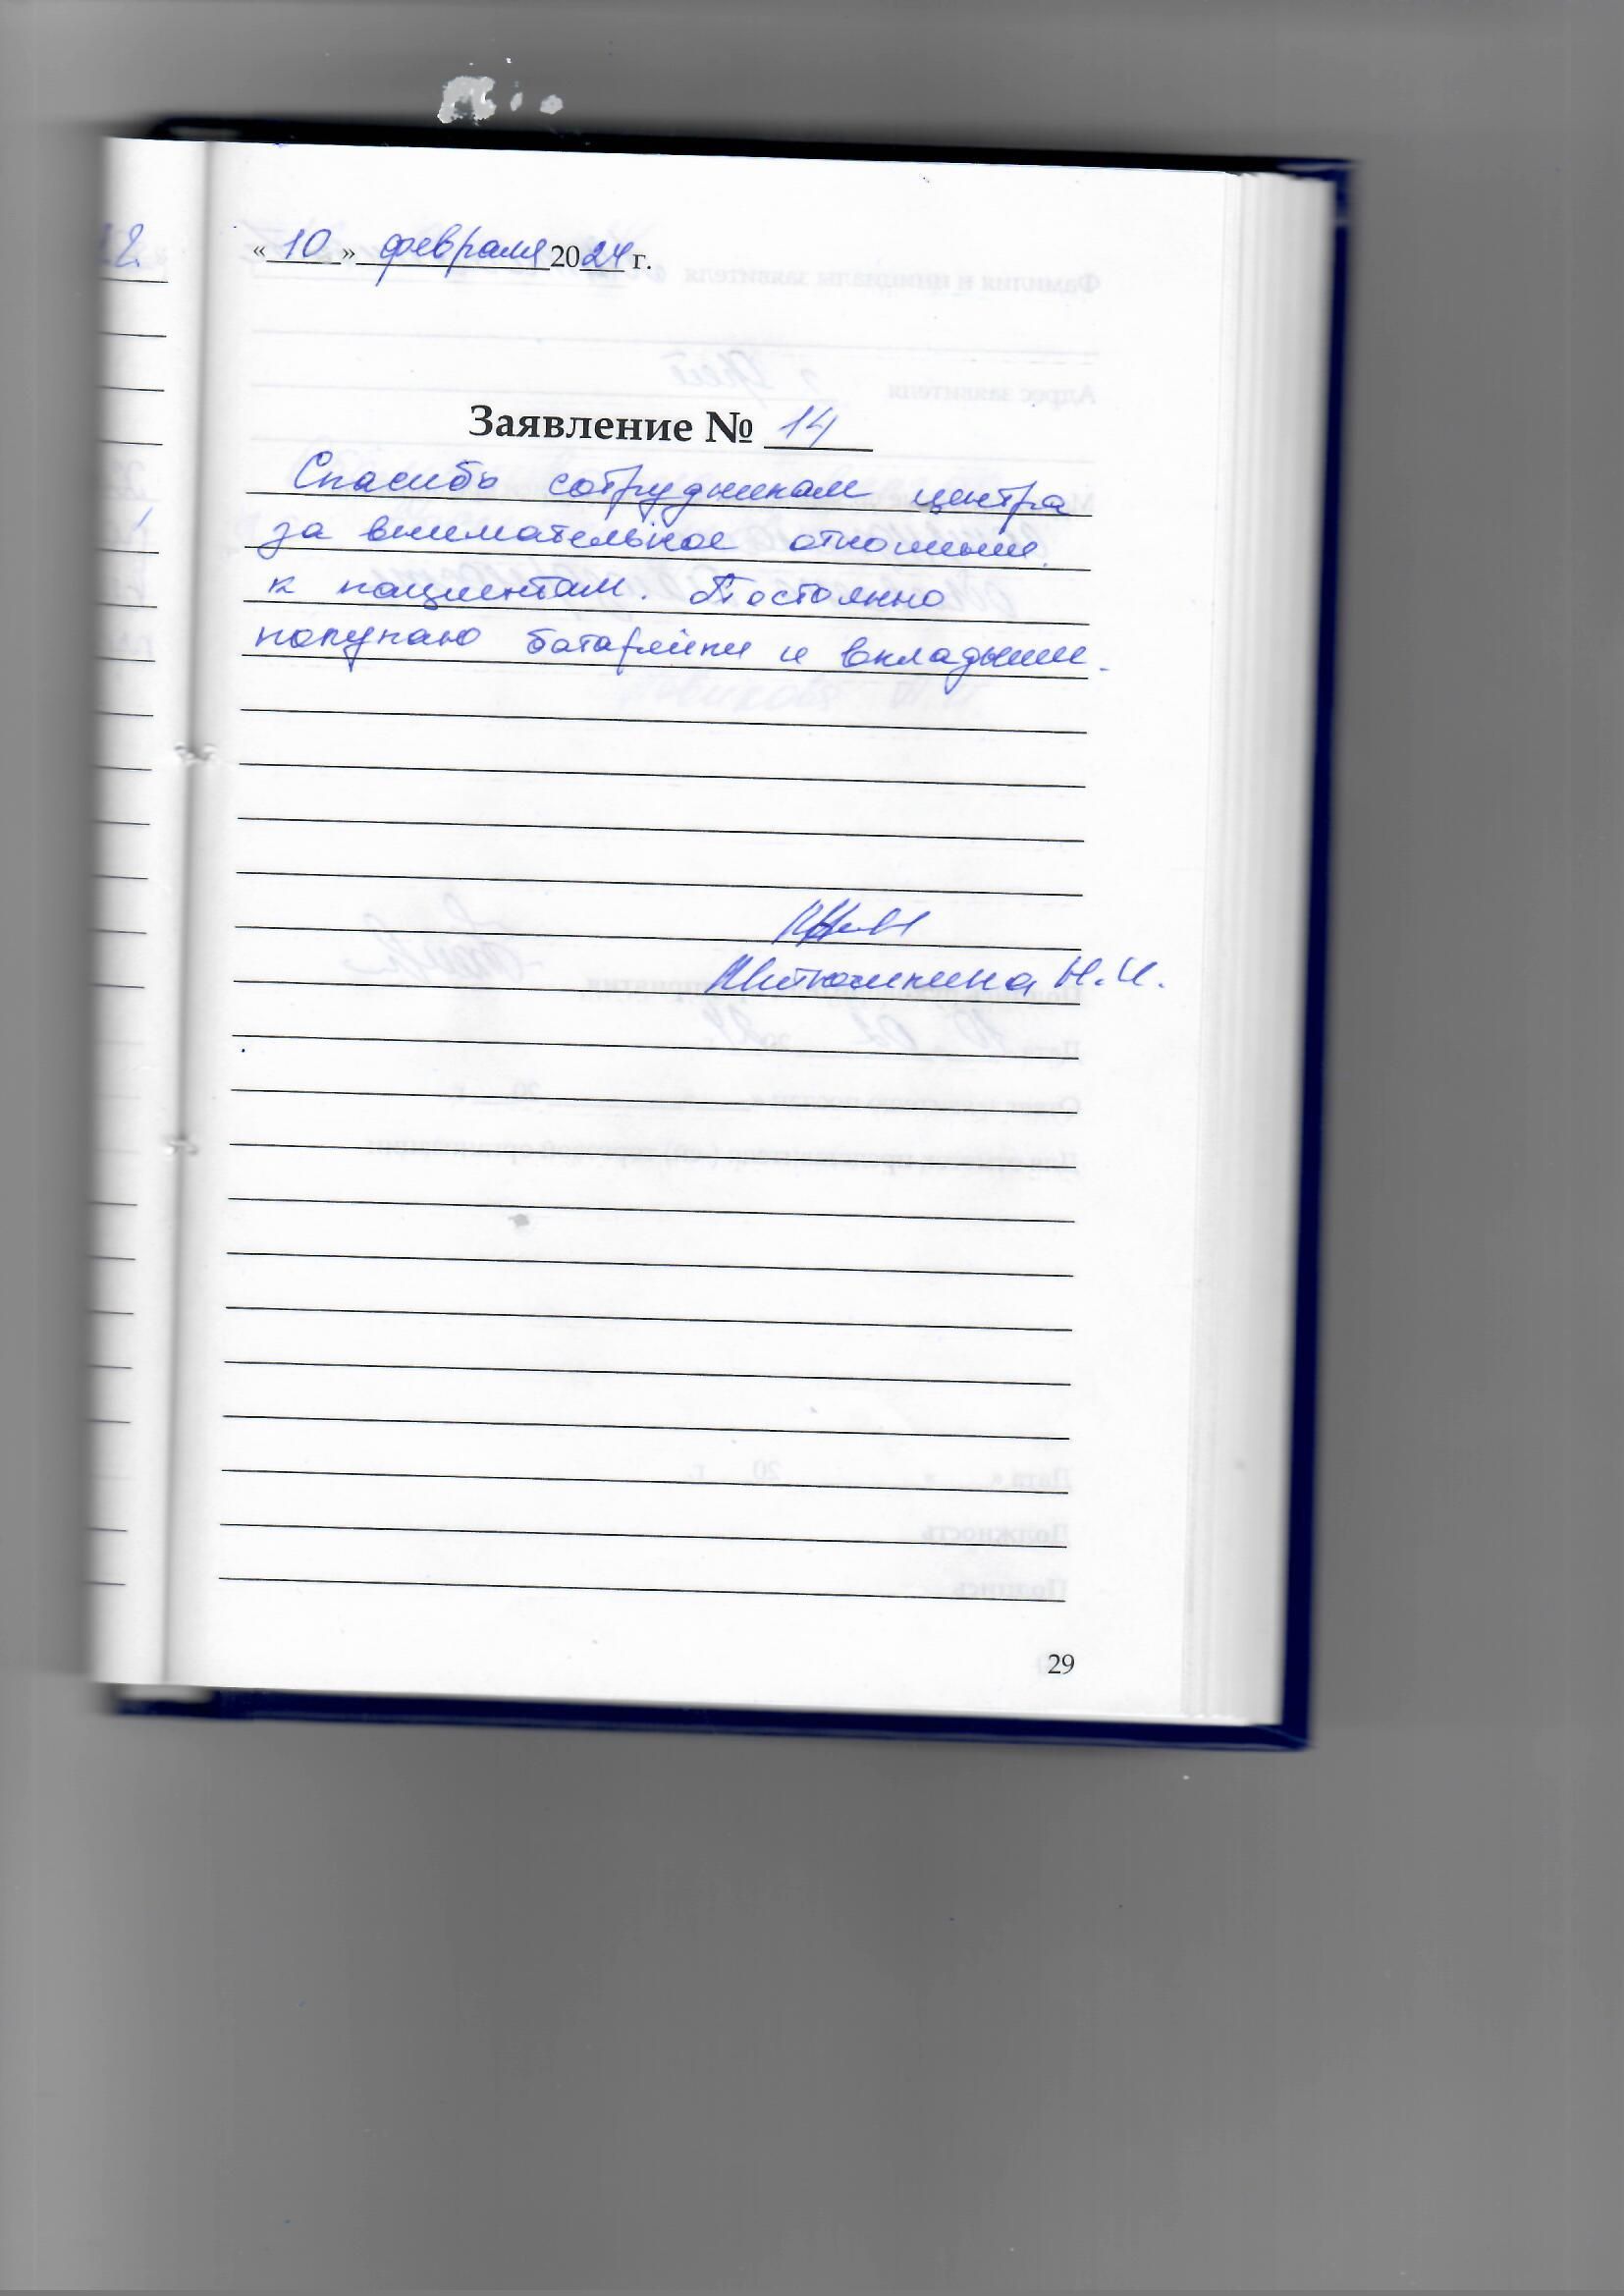 «10» февраля 2024 г.
Заявление № 14
Спасибо сотрудникам центра
за внимательное отношение
к пациентам. Постоянно
покупаю батарейки и вкладыши.
Н.И.
29